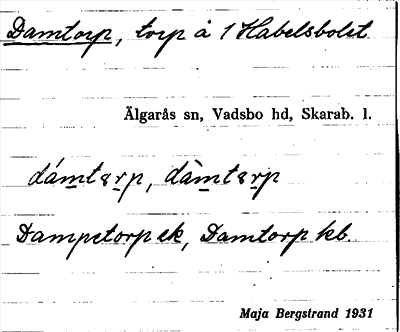 Damtorp, torp å 1 Habelsbolet
Älgarås sn, Vadsbo hd, Skarab. l.
dámtɛrp, dàmtɛrp
Dampetorp ek, Damtorp kb.
Maja Bergstrand 1931